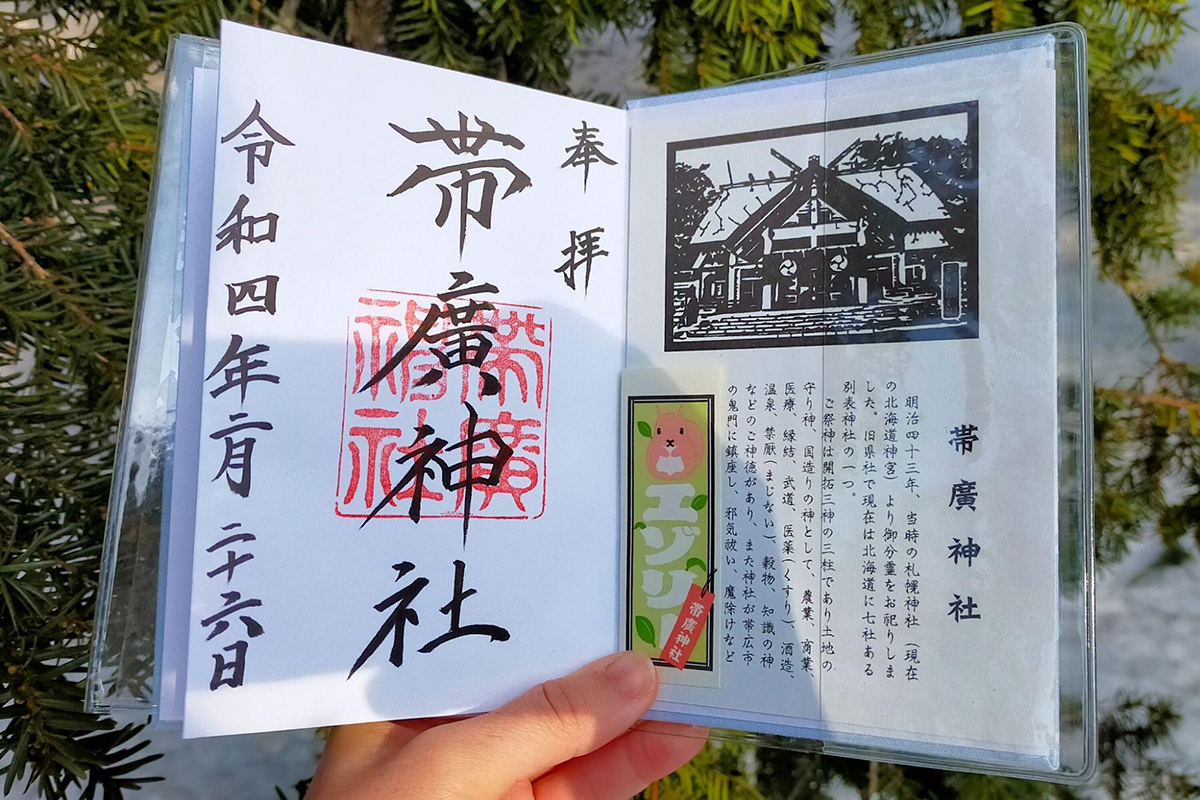 帯廣神社
明治四十三年、当時の札幌神社(現在
の北海道神宮)より御分霊をお祀りしま
した。旧県社で現在は北海道に七社ある
別表神社の一つ。
ご祭神は開拓三神の三柱であり土地の
守り神、国造りの神として、農業、商業、
医療、縁結、武道、医薬(くすり)、酒造、
温泉、禁厭(まじない)、穀物、知識の神
などのご神徳があり、また神社が帯広市
の鬼門に鎮座し、邪気祓い、魔除けなど
エゾリ
帯廣神社
奉拝
帯廣神社
帯廣
神社
令和四年二月二十六日